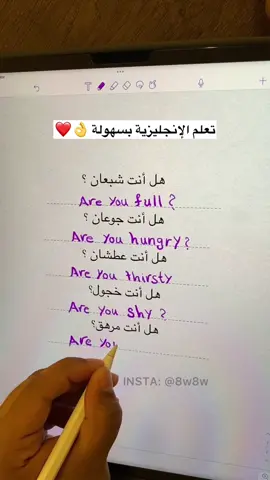 تعلم الإنجليزية بسهولة 👌❤️
هل أنت شبعان ؟
Are you full ?
هل أنت جوعان ؟
Are you hungry ?
هل أنت عطشان ؟
Are you thirsty
هل أنت خجول؟
Are you shy ?
هل أنت مرهق؟
Are you
INSTA: @8w8w